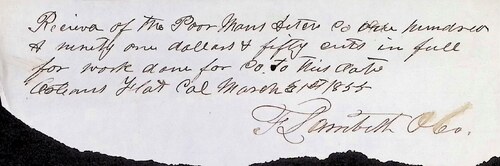 Recievd of the Poor Mans Ditch Co One hundred
& ninety one dollars & fifty cnts in full
for work done for Co. To this date
Orleans Flat Cal March 31st 1855
& Co.